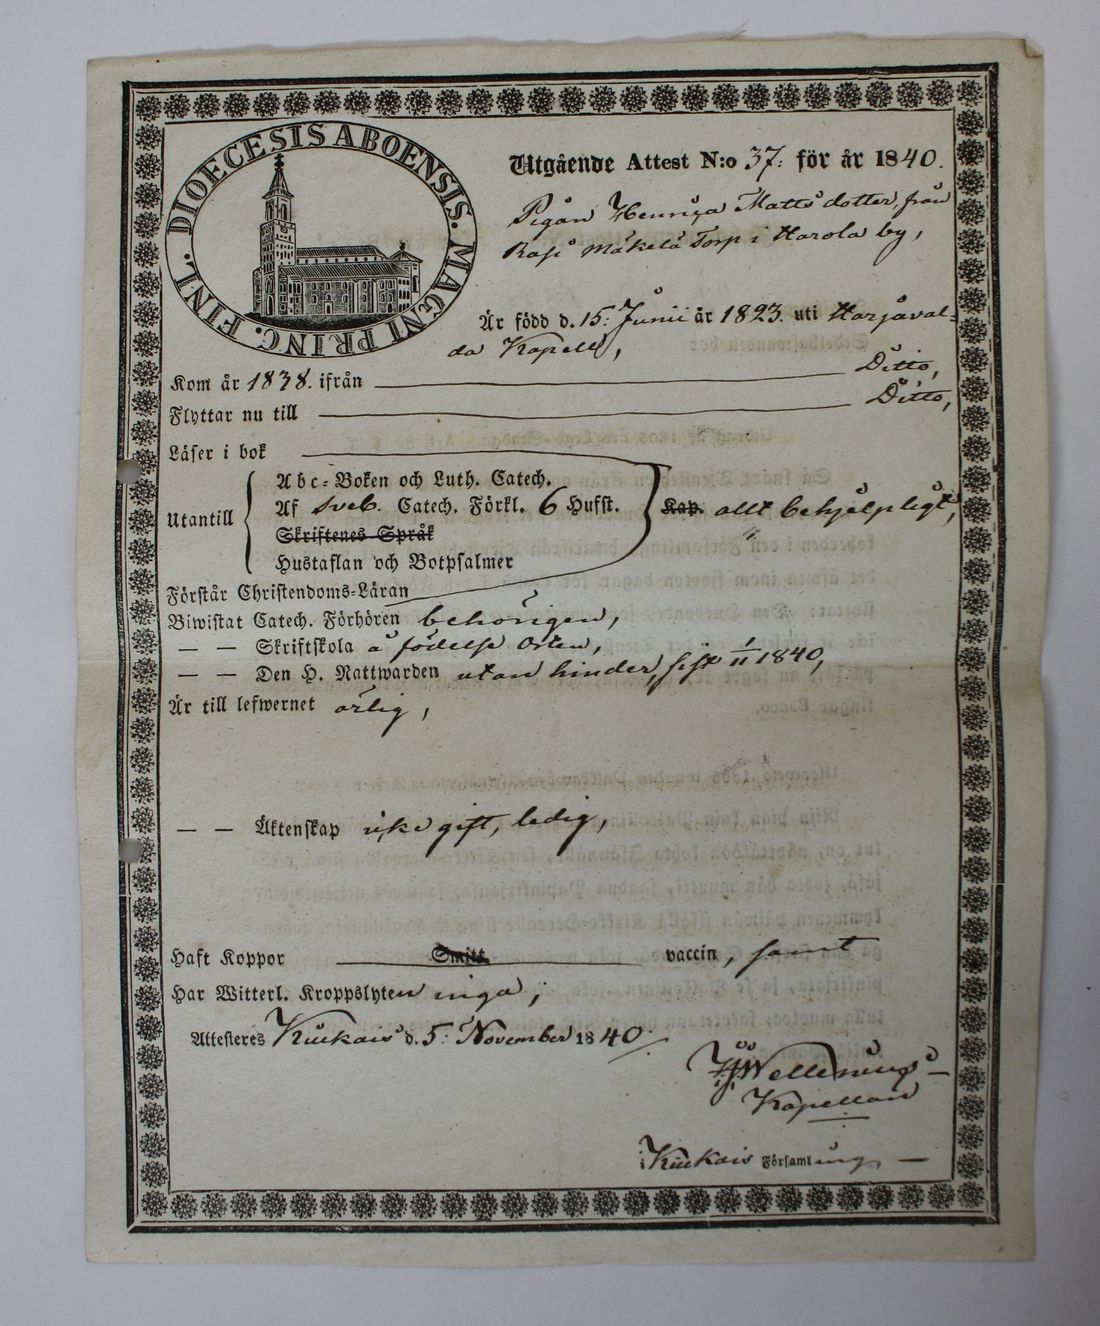 DIOECESIS ABOENSIS. MAGNI PRINC. FINL.
Utgående Attest N:o 37: för år 1840.
Pigan Henrica Mattsdotter, från
Rasi Mäkelä Torp i Harola by,
Är född d. 15: Junii år 1823. uti Harjaval-
da Kapell,
Kom år 1838. ifrån Ditto,
Flyttar nu till Ditto,
Läser i bok
Utantill
Abc-Boken och Luth. Catech.
Af Sveb. Catech. Förkl. 6 Hufst. Kap. allt behjelpligt,
Skriftenes Språk
Hustaflan och Botpsalmer
Förstår Christendoms-Läran
Biwistat Catech. Förhören behörigen,
— — Skriftskola å födelse Orten,
— — Den H. Nattwarden utan hinder, sist 1/11 1840,
Är till lefwernet ärlig,
— — Äktenskap icke gift, ledig,
Haft Koppor Smitt. vaccin, samt
Har Witterl. Kroppslyten inga,
Attesteres Kiukais d. 5: November 1840.
Wellenius
Kapellan
i Kiukais Församling